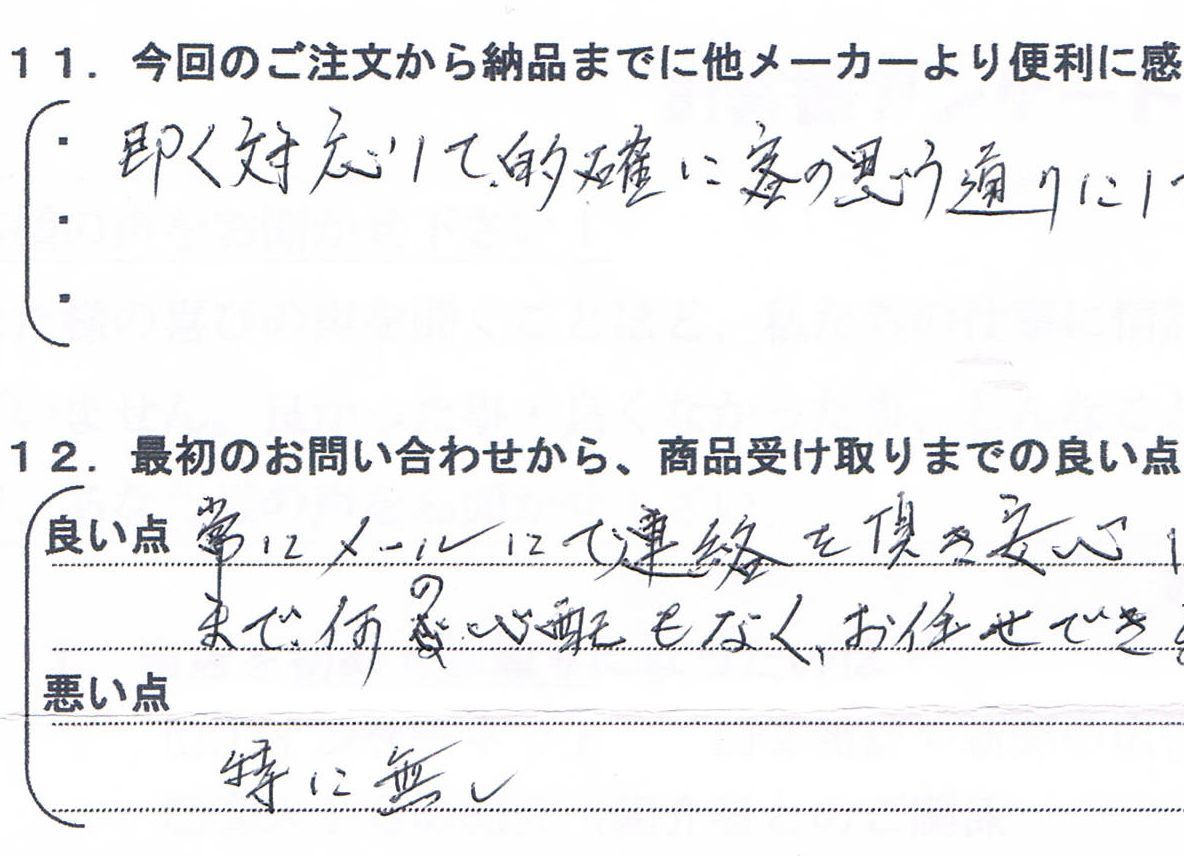 11. 今回のご注文から納品までに他メーカーより便利に感
・ 即く対応して、的確に客の思う通りにして
・
・
12. 最初のお問い合わせから、商品受け取りまでの良い点
良い点 常にメールにて連絡を頂き安心し
まで、何の心配もなく、お任せできま
悪い点
特に無し